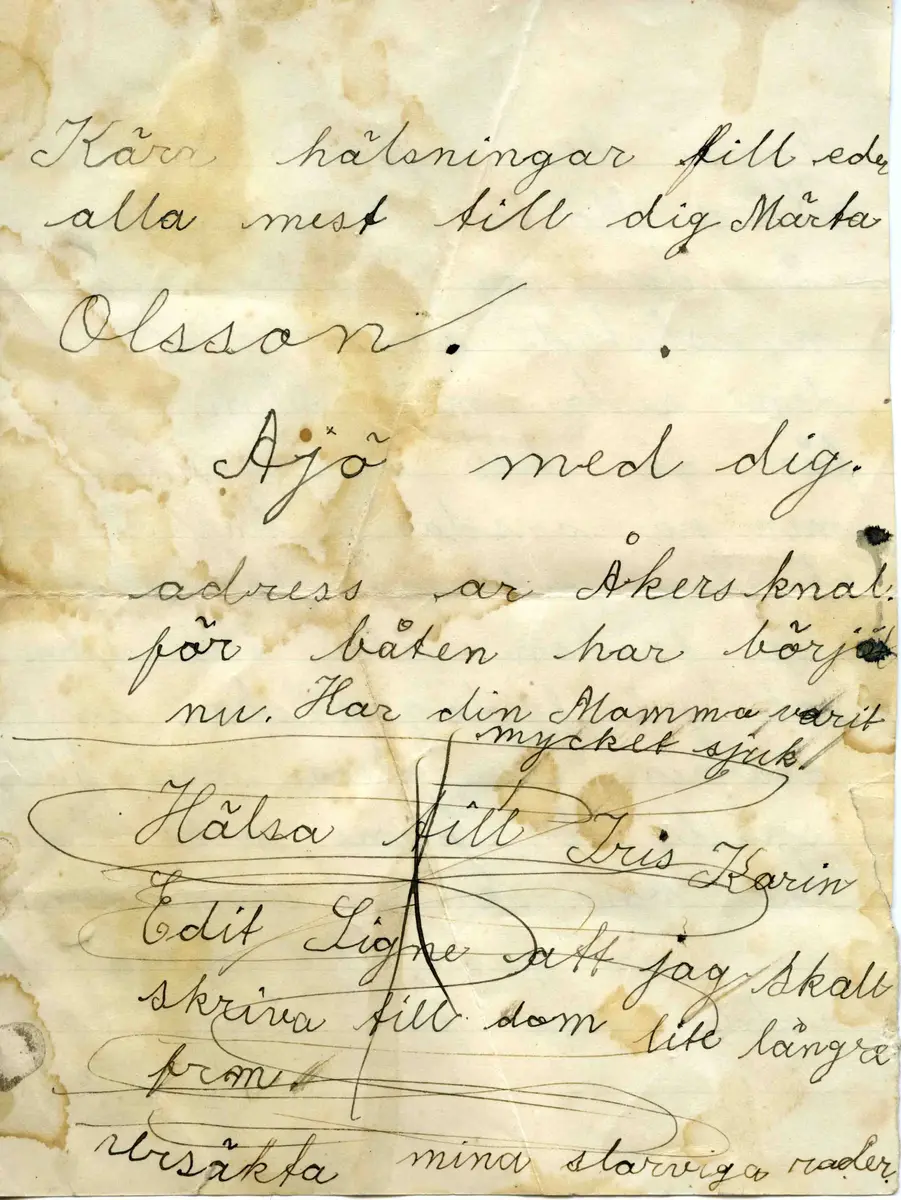 Kära hälsningar till eder
alla mest till dig Märta
Olsson.
Ajö med dig.
adress ar Åkersknal.
för båten har börjat
nu. Har din Mamma varit
mycket sjuk.
Hälsa till Iris Karin
Edit Signe att jag skall
skriva till dom lite längre
frm.
ursäkta mina slarviga rader.